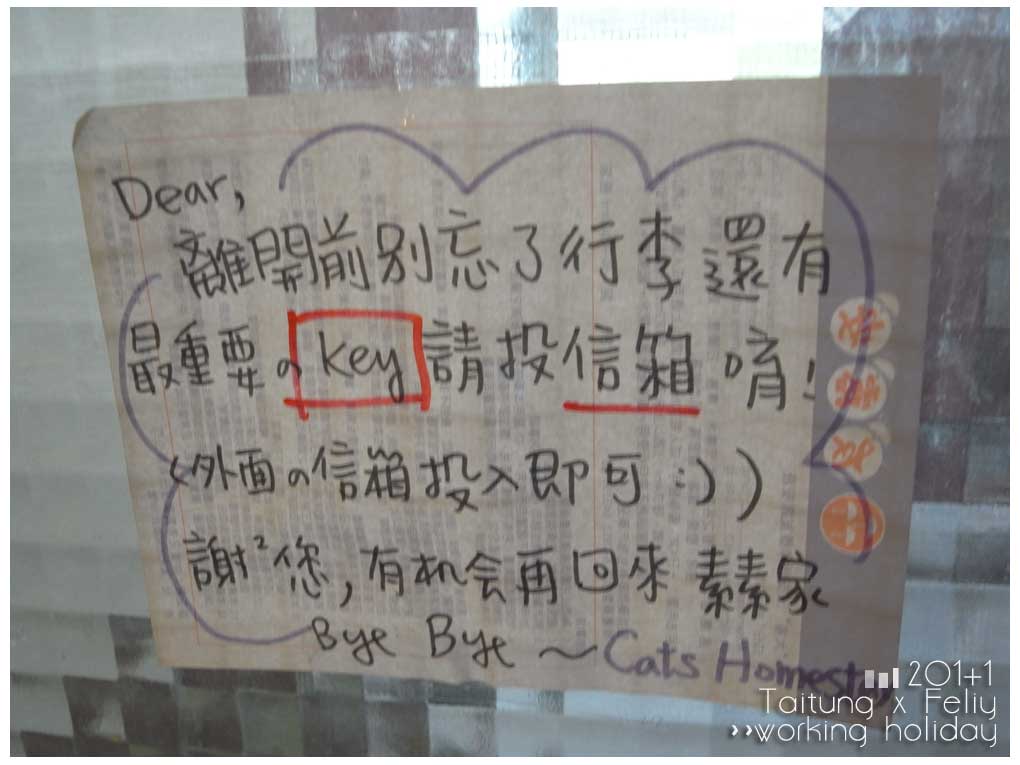 Dear,
離開前別忘了行李還有
最重要の key 請投信箱唷!
(外面の信箱投入即可 :) )
謝²您, 有机会再回來 素素家
Bye Bye ~ Cats Homestay
201+1
Taitung x Feliy
»working holiday